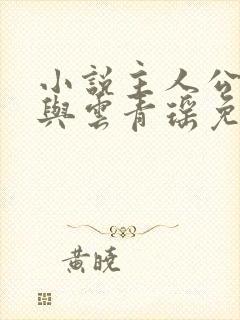 小說主人公
與雲青瑤免
黃曉